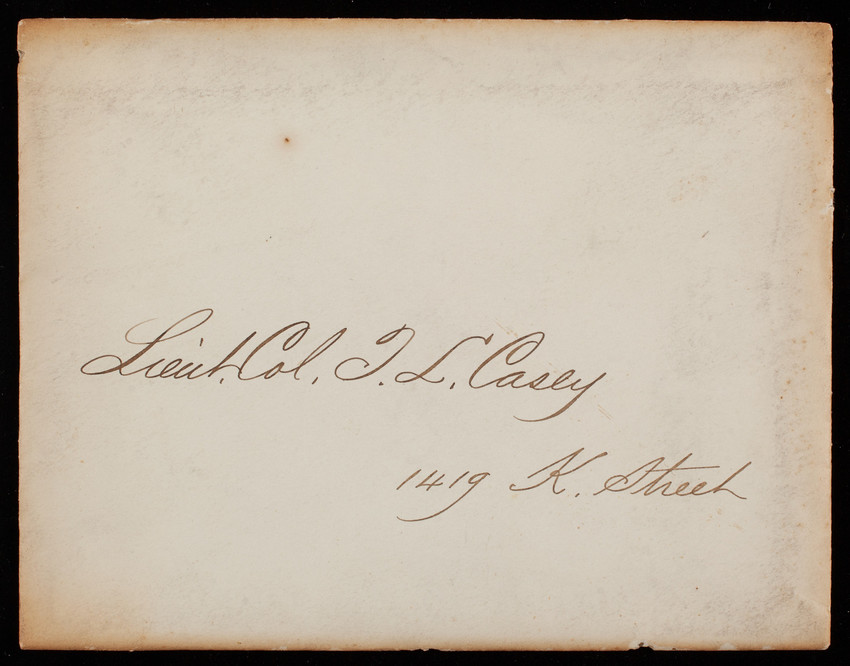 Lieut. Col. T. L. Casey
1419 K. Street